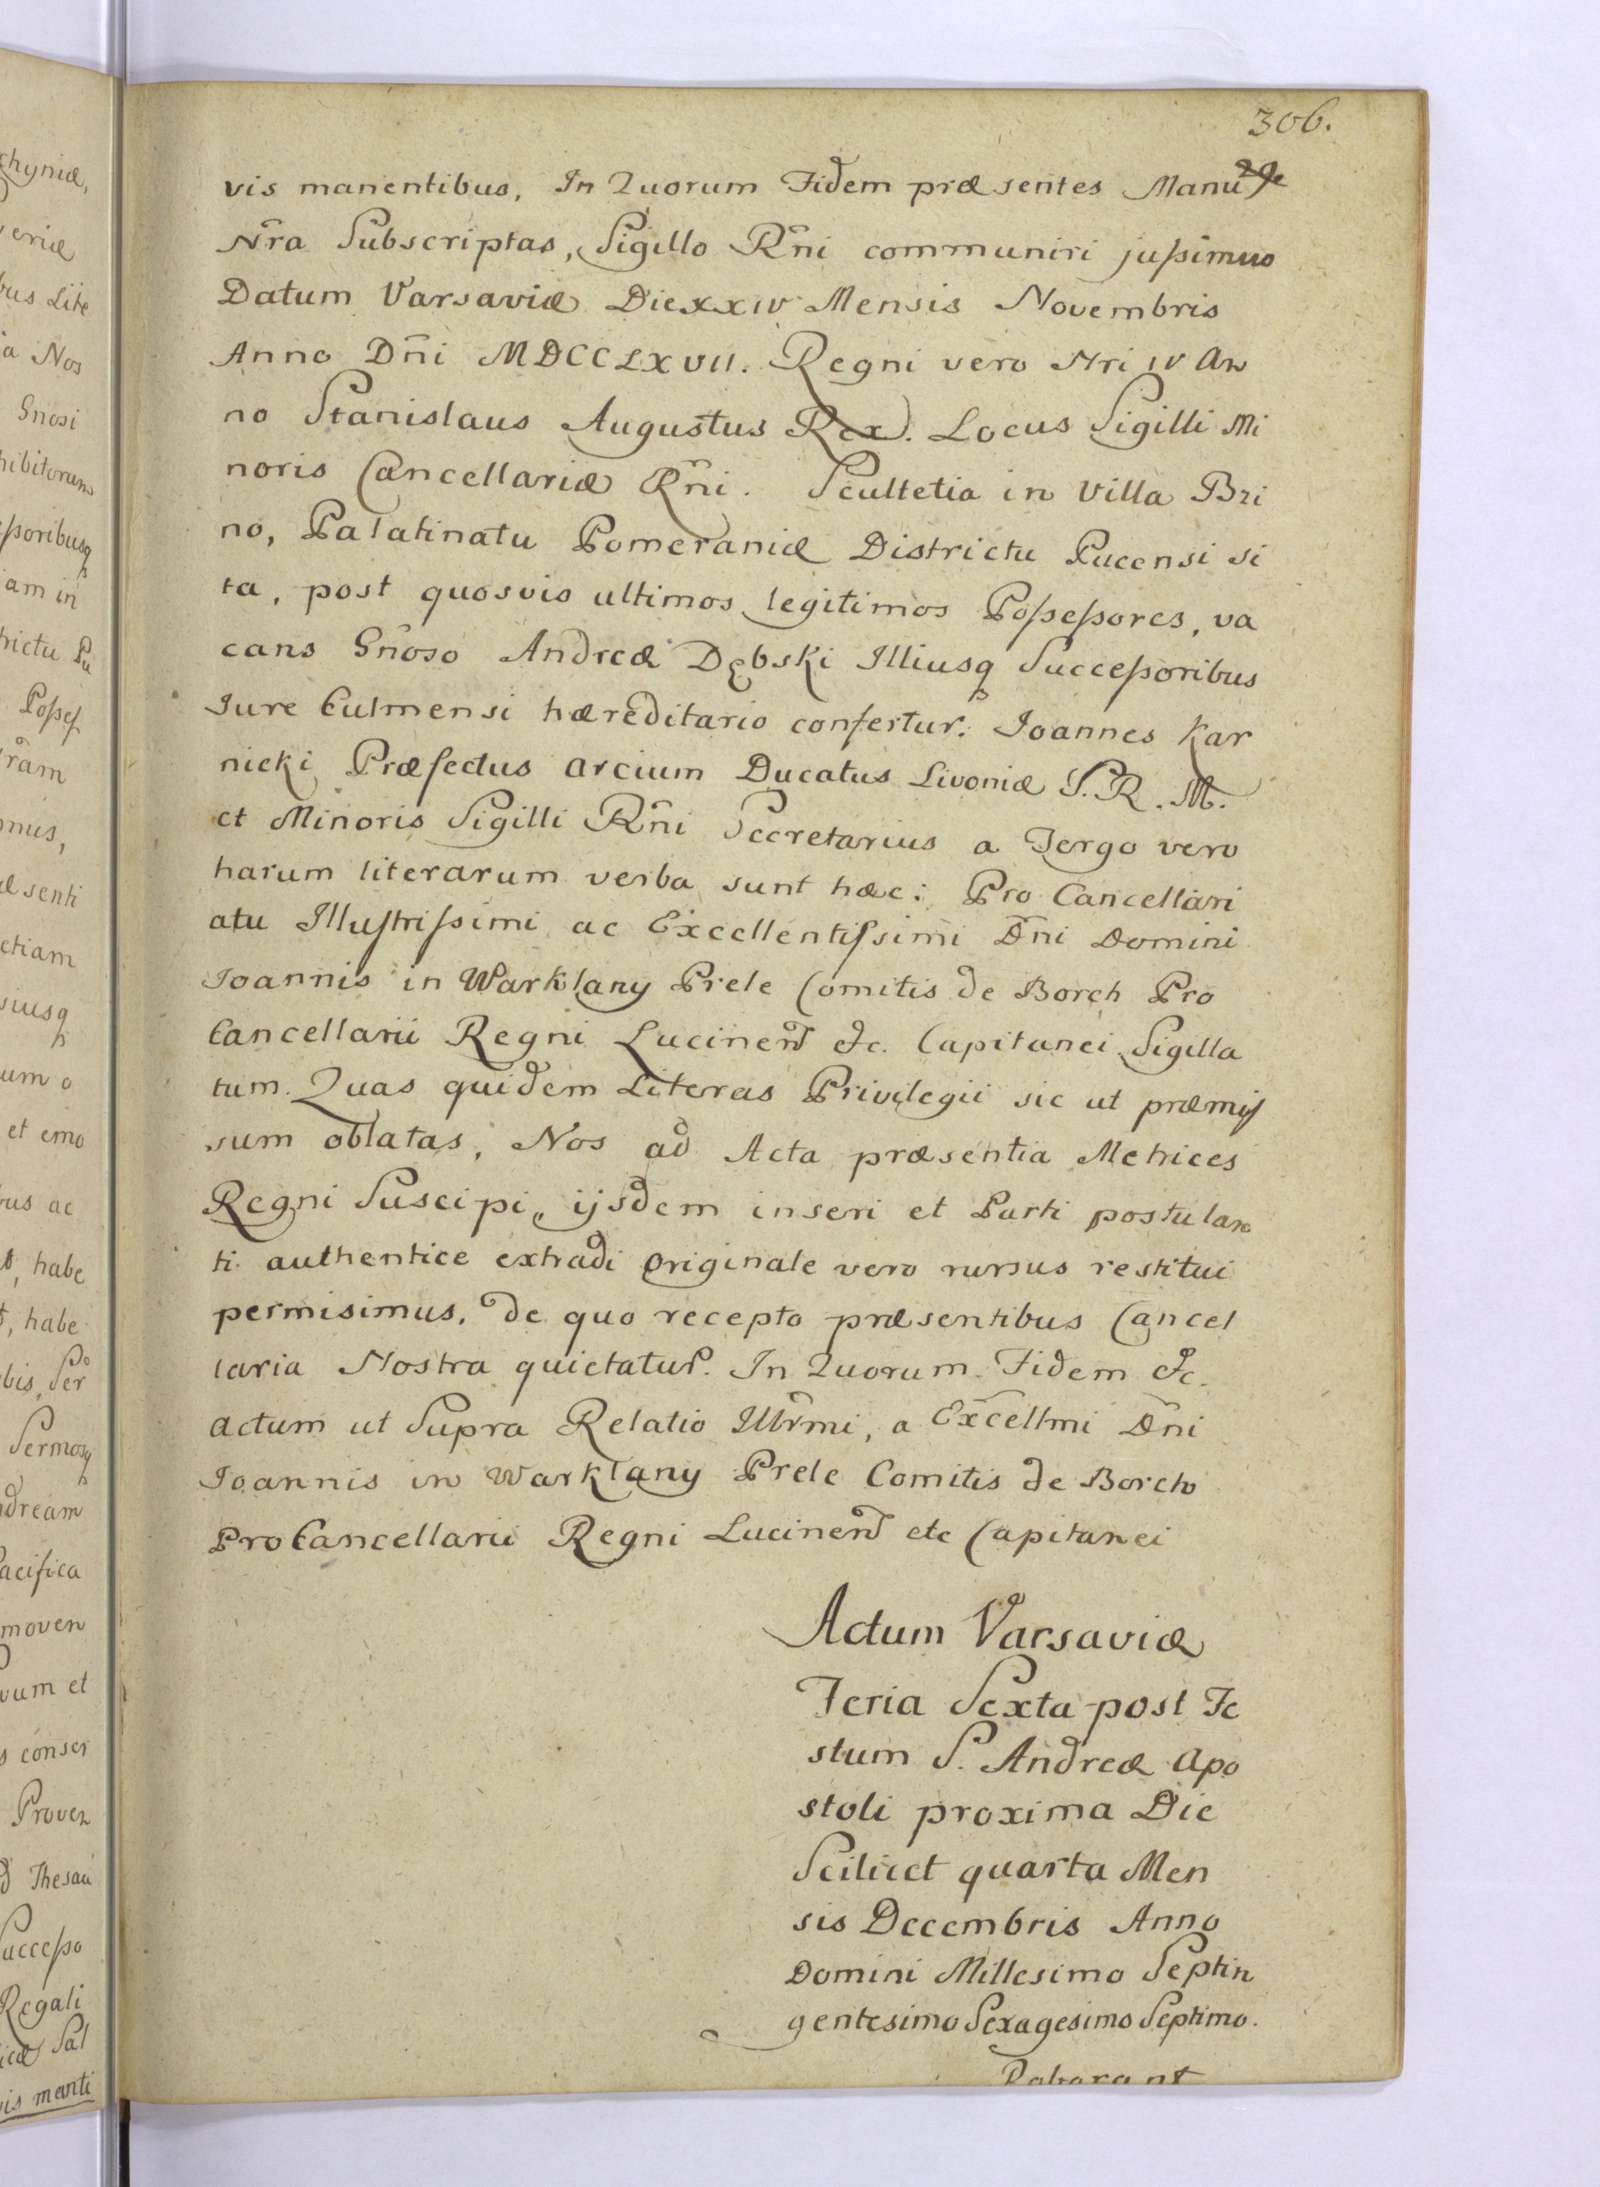 306.
vis manentibus, In Quorum Fidem præsentes Manu
Nr̃a Subscriptas, Sigillo Rñi communiri jussimus
Datum Varsaviæ Die XXIV Mensis Novembris
Anno Dñi MDCCLXVII. Regni vero Nri IV An
no Stanislaus Augustus Rex. Locus Sigilli Mi
noris Cancellariæ Rñi. Scultetia in Villa Bri
no, Palatinatu Pomeraniæ Districtu Pucensi si
ta, post quosvis ultimos legitimos Possessores, va
cans Gñoso Andreæ Dębski Illiusq Successoribus
Iure Culmensi hæreditario confertur. Ioannes Kar
nicki Præfectus arcium Ducatus Livoniæ S. R. M.
et Minoris Sigilli Rñi Secretarius a Tergo vero
harum literarum verba sunt hæc: Pro Cancellari
atu Illustrissimi ac Excellentissimi Dñi Domini
Ioannis in Warklany Prele Comitis de Borch Pro
Cancellarii Regni Lucinen etc. Capitanei Sigilla
tum. Quas quidem Literas Privilegii sic ut præmis
sum oblatas, Nos ad Acta præsentia Metrices
Regni Suscipi, ijsdem inseri et Parti postulan
ti authentice extradi originale vero rursus restitui
permisimus, de quo recepto præsentibus Cancel
laria Nostra quietatur. In Quorum Fidem etc.
actum ut Supra Relatio Illr̃mi, a Exc̃ellmi Dñi
Ioannis in Warklany Prele Comitis de Borch
ProCancellarii Regni Lucinen etc Capitanei
Actum Varsaviæ
Feria Sexta post Fe
stum S. Andreæ Apo
stoli proxima Die
Scilicet quarta Men
sis Decembris Anno
Domini Millesimo Septin
gentesimo Sexagesimo Septimo.